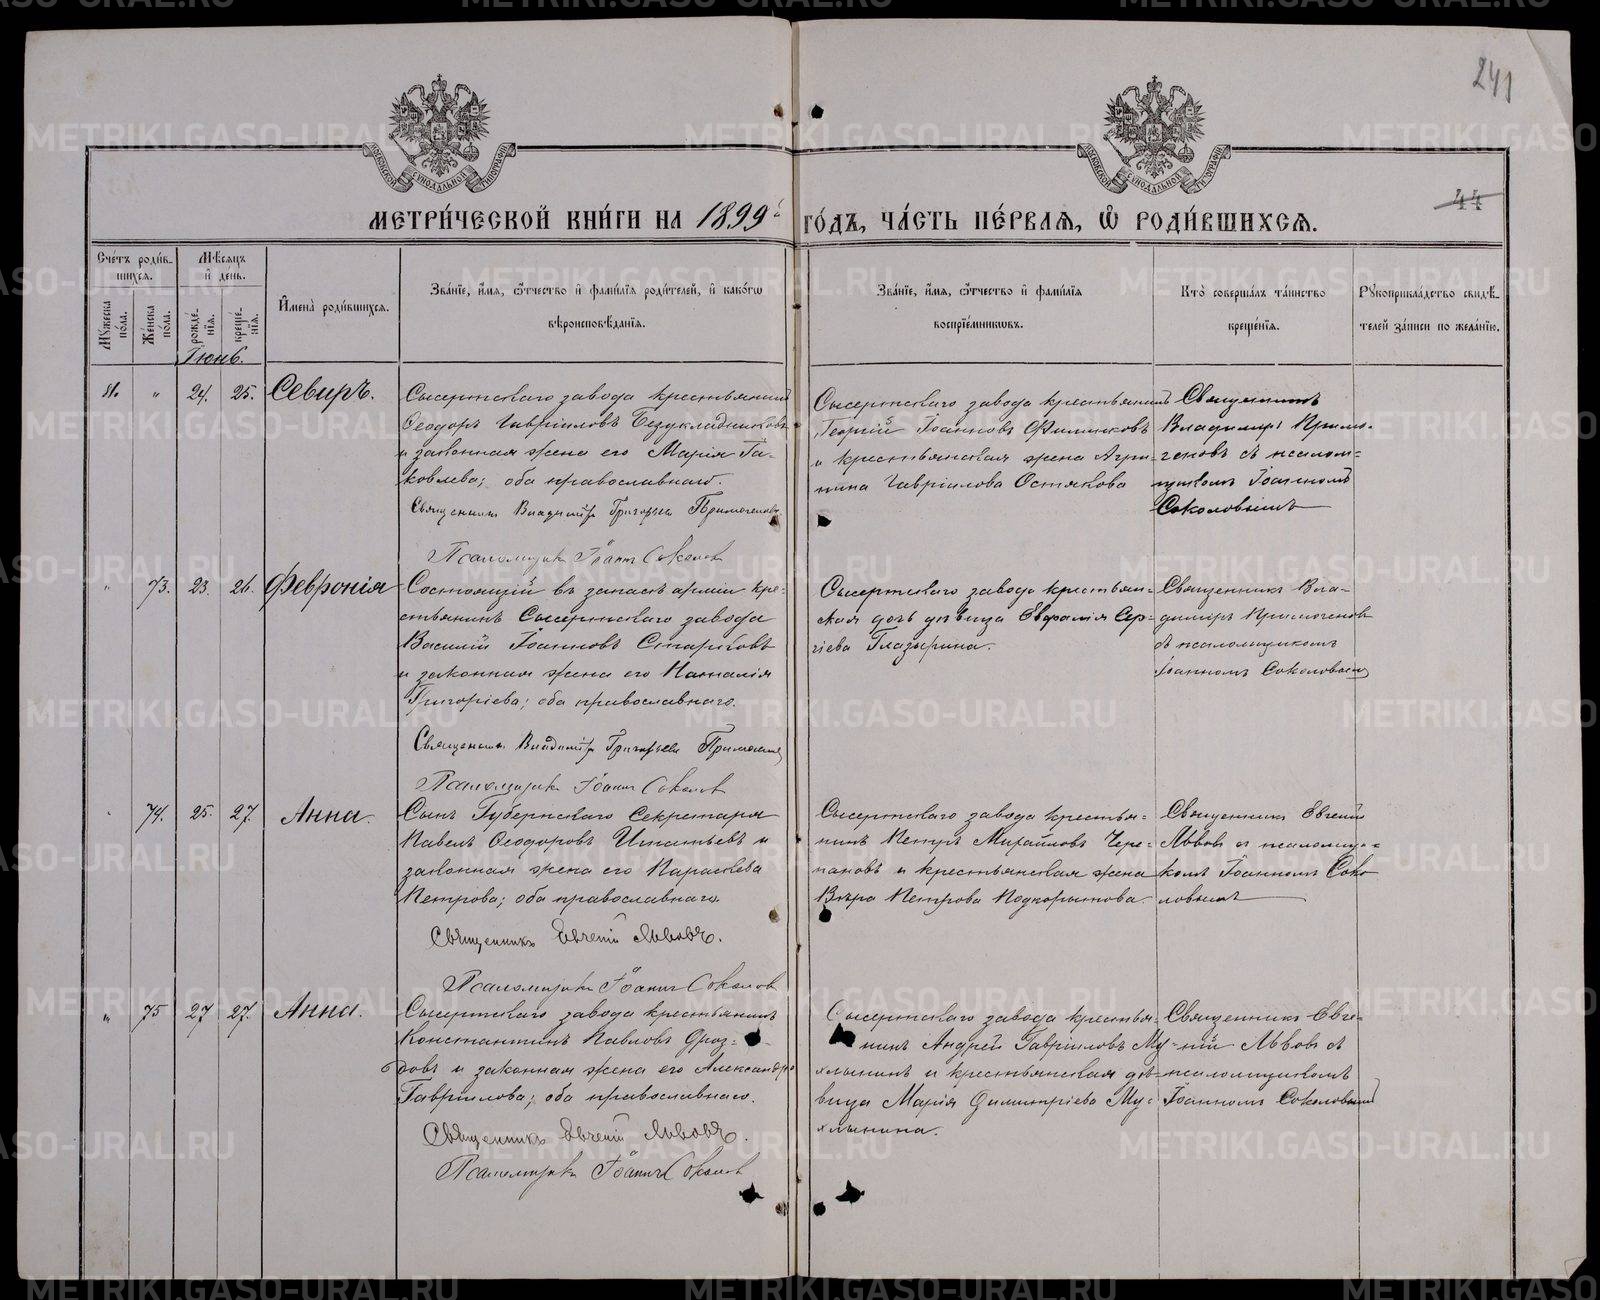 241
44
МЕТРИ́ЧЕСКОЙ КНИ́ГИ НА 1899 ГО́ДЪ, ЧА́СТЬ ПЕ́РВАЯ, Ѡ РОДИ́ВШИХСЯ.
Сче́тъ роди́в-
шихся.
Му́жеска по́ла.
Же́нска по́ла.
Мѣ́сяцъ
и҆ де́нь.
рожде́-
нїя.
креще́-
нїя.
И҆мена̀ роди́вшихся.
Зва́нїе, и҆́мя, ѻ҆́тчество и҆ фами́лїя роди́телей, и҆ како́гѡ
вѣроисповѣ́данїя.
Зва́нїе, и҆́мя, ѻ҆́тчество и҆ фами́лїя
воспрїе́мниковъ.
Кто̀ соверша́лъ та́инство
креще́нїя.
Рꙋкоприкла́дство свидѣ́-
телей за́писи по жела́нїю.
Іюнь.
81. " 24. 25. Севиръ.
Сысертскаго завода крестьянинъ
Ѳеодоръ Гавріиловъ Безукладниковъ
и законная жена его Марія Іа-
ковлева; оба православнаго.
Священникъ Владиміръ Григорьевъ Примогеновъ
Псаломщикъ Іоаннъ Соколов
Сысертскаго завода крестьянинъ
Георгій Іоанновъ Филинковъ
и крестьянская жена Агри-
пина Гавріилова Остякова
Священникъ
Владиміръ Примо-
геновъ съ псалом-
щикомъ Іоанномъ
Соколовымъ
" 73. 23. 26. Февронія
Состоящій въ запасѣ арміи кре-
стьянинъ Сысертскаго завода
Василій Іоанновъ Старковъ
и законная жена его Наталія
Григоріева; оба православнаго.
Священникъ Владиміръ Григорьевъ
Псаломщикъ Іоаннъ Соколов
Сысертскаго завода крестьян-
ская дочь дѣвица Евфалія Сер-
гіева Глазырина.
Священникъ Вла-
диміръ Примогеновъ
съ псаломщикомъ
Іоанномъ Соколовымъ
74. 25. 27. Анна.
Сынъ Губернскаго Секретаря
Павелъ Ѳеодоровъ Игнатьевъ и
законная жена его Параскева
Петрова; оба православнаго.
Священникъ Евгеній Львовъ.
Псаломщикъ Іоаннъ Соколов
Сысертскаго завода крестья-
нинъ Петръ Михайловъ Чере-
пановъ и крестьянская жена
Вѣра Петрова Подкорытова.
Священникъ Евгеній
Львовъ съ псаломщи-
комъ Іоанномъ Соко-
ловымъ
" 75 27 27. Анна.
Сысертскаго завода крестьянинъ
Константинъ Павловъ Дроз-
довъ и законная жена его Александра
Гавріилова; оба православнаго.
Священникъ Евгеній Львовъ.
Псаломщикъ Іоаннъ Соколов
Сысертскаго завода крестья-
нинъ Андрей Гавріиловъ Му-
хлынинъ и крестьянская дѣ-
вица Марія Димитріева Му-
хлынина.
Священникъ Евге-
ній Львовъ съ
псаломщикомъ
Іоанномъ Соколовымъ
METRIKI.GASO-URAL.RU